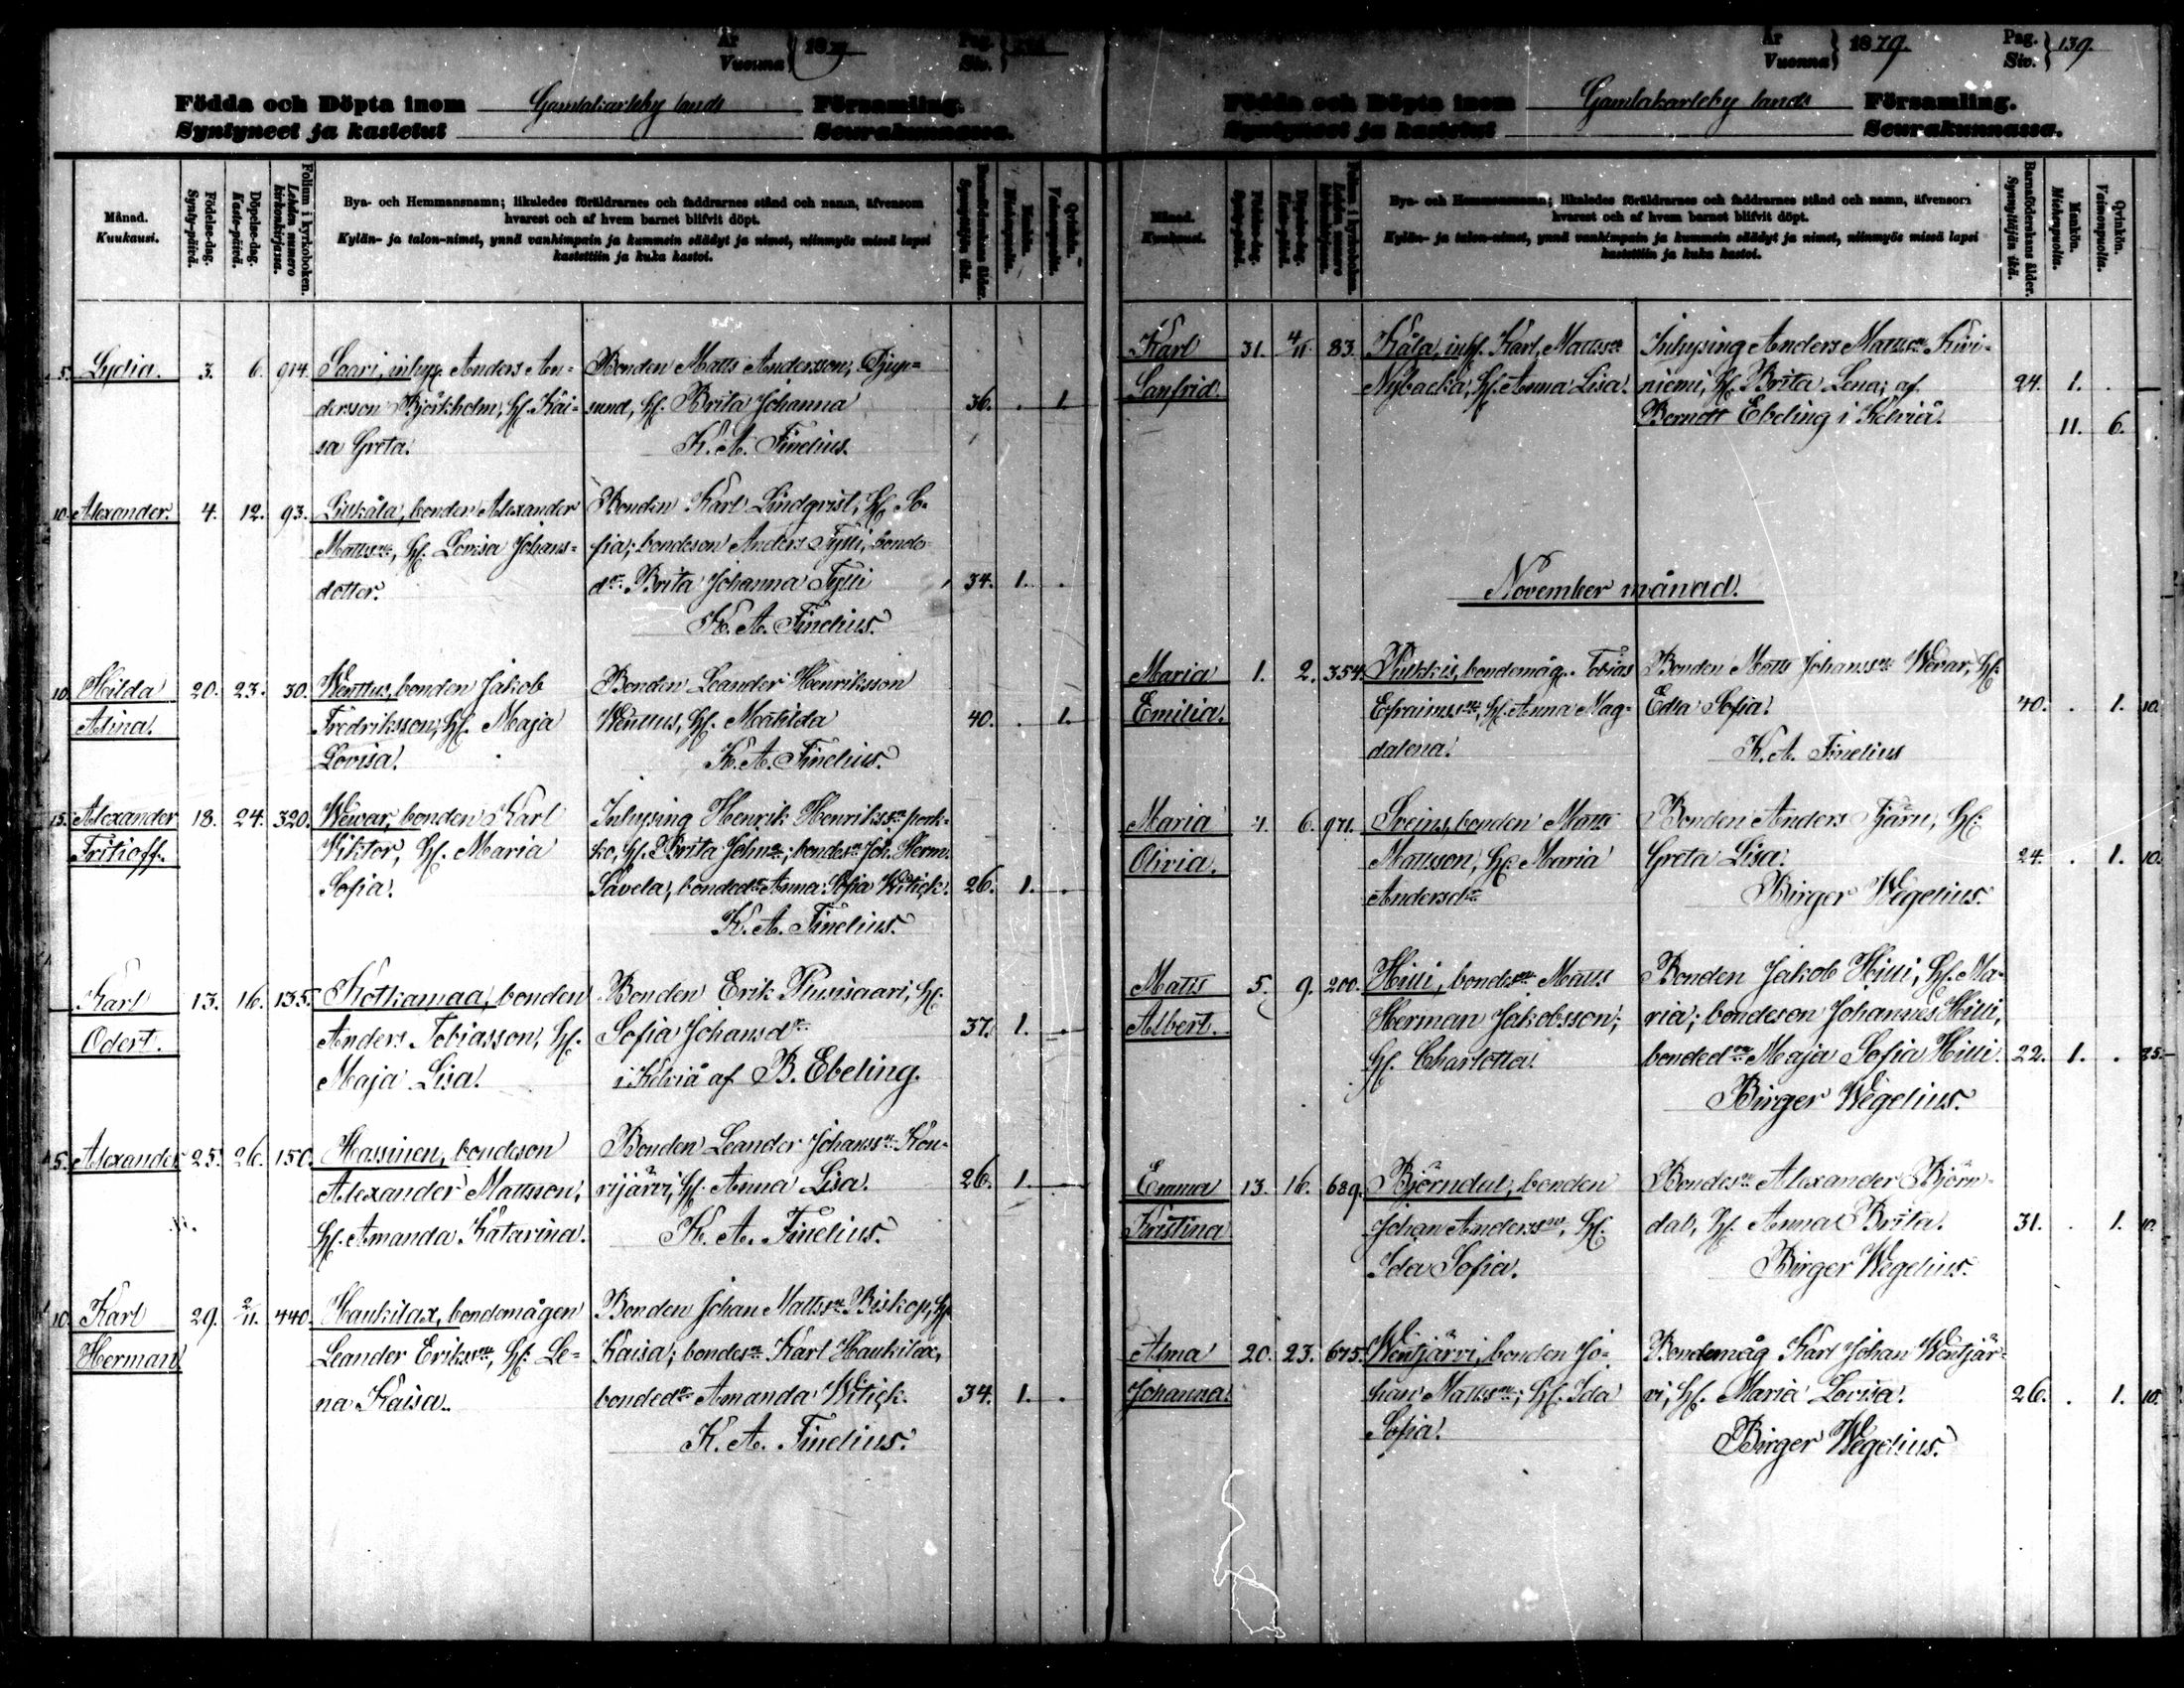 År
Vuonna } 1879
Pag.
Siv. }
Födda och Döpta inom Gamlakarleby lands Församling.
Syntyneet ja kastetut Seurakunnassa.
Månad.
Kuukausi.
Födelse-dag.
Synty-päivä.
Döpelse-dag.
Kaste-päivä.
Folium i kyrkoboken.
Lehden numero
kirkonkirjassa.
Bya- och Hemmansnamn; likaledes föräldrarnes och faddrarnes stånd och namn, äfvensom
hvarest och af hvem barnet blifvit döpt.
Kylän- ja talon-nimet, ynnä vanhimpain ja kummein säädyt ja nimet, niinmyös missä lapsi
kastettiin ja kuka kastoi.
Barnaföderskans ålder.
Synnyttäjän ikä.
Mankön.
Miehenpuolta.
Qvinkön.
Vaimonpuolta.
5. Lydia. 3. 6. 914. Saari, inhys. Anders An- Bonden Matts Andersson, Djup-
dersson Björkholm, Hf. Kai- sund, Hf. Brita Johanna 36. . 1.
sa Greta. K. A. Finelius.
10. Alexander. 4. 12. 93. Lillkåla, bonden Alexander Bonden Karl Lindqvist, Hf. So-
Mattsson, Hf. Lovisa Johans- fia; bondeson Anders Tylli, bonde-
dotter. dr. Brita Johanna Tylli 34. 1. .
K. A. Finelius.
10. Hilda 20. 23. 30. Wenttus, bonden Jakob Bonden Leander Henriksson
Alina. Fredriksson, Hf. Maja Wenttus, Hf. Mathilda 40. . 1.
Lovisa. K. A. Finelius.
15. Alexander 18. 24. 320. Wewar, bonden Karl Inhysing Henrik Henrikssn pork-
Frithoff. Viktor, Hf. Maria ko, Hf. Brita Johna; bondesn Joh. Herm.
Sofia. Sävelä, bondedr Anna Sofia Witick. 26. 1. .
K. A. Finelius.
Karl 13. 16. 135. Kotkamaa, bonden Bonden Erik Plusisaari, Hf.
Odert. Anders Tobiasson, Hf. Sofia Johansdr 37. 1. .
Maja Lisa. i Kelviå af B. Ebeling.
5. Alexander 25. 26. 150. Hassinen, bondeson Bonden Leander Johanssn Kou-
Alexander Mattsson, rijärvi, Hf. Anna Lisa. 26. 1.
Hf. Amanda Katarina. K. A. Finelius.
10. Karl 29. 2/11. 440. Haukilax, bondemågen Bonden Johan Mattsn Biskop, Hf.
Herman Leander Erikssn, Hf. Le- Kaisa; bondesn Karl Haukilax,
na Kaisa. bondedr Amanda Witick. 34. 1. .
K. A. Finelius.
År
Vuonna } 1879.
Pag.
Siv. } 139.
Födda och Döpta inom Gamlakarleby lands Församling.
Syntyneet ja kastetut Seurakunnassa.
Månad.
Kuukausi.
Födelse-dag.
Synty-päivä.
Döpelse-dag.
Kaste-päivä.
Folium i kyrkoboken.
Lehden numero
kirkonkirjassa.
Bya- och Hemmansnamn; likaledes föräldrarnes och faddrarnes stånd och namn, äfvensom
hvarest och af hvem barnet blifvit döpt.
Kylän- ja talon-nimet, ynnä vanhimpain ja kummein säädyt ja nimet, niinmyös missä lapsi
kastettiin ja kuka kastoi.
Barnaföderskans ålder.
Synnyttäjän ikä.
Mankön.
Miehenpuolta.
Qvinkön.
Vaimonpuolta.
Karl 31. 4/11. 83. Kåla, inhs. Karl Mattsn Inhysing Anders Mattsn Kivi-
Sanfrid. Nybacka, Hf. Anna Lisa. niemi, Hf. Brita Lena; af 24. 1. .
Berndt Ebeling i Kelviå. 11. 6.
November månad.
Maria 1. 2. 354. Pukkis, bondemåg. Tobias Bonden Matts Johanssn Wevar, Hf.
Emilia. Efraimssn, Hf. Anna Mag- Edla Sofia. 40. . 1. 10.
dalena. K. A. Finelius
Maria 4. 6. 971. Sveins, bonden Matts Bonden Anders Tjäru, Hf.
Olivia. Mattsson, Hf. Maria Greta Lisa. 24. . 1. 10.
Andersdr Birger Wegelius.
Matts 5. 9. 200. Hilli, bondesn Matts Bonden Jakob Hilli, Hf. Ma-
Albert. Herman Jakobsson, ria; bondeson Johannes Hilli,
Hf. Charlotta. bondedr Maja Sofia Hilli. 22. 1. . 25.
Birger Wegelius.
Emma 13. 16. 689. Björndal, bonden Bondesn Alexander Björn-
Kristina Johan Anderssn, Hf. dal, Hf. Anna Brita. 31. . 1. 10.
Ida Sofia. Birger Wegelius.
Alma 20. 23. 675. Wentjärvi, bonden Jo- Bondemåg Karl Johan Wentjär-
Johanna. han Mattssn; Hf. Ida vi, Hf. Maria Lovisa. 26. . 1. 10.
Sofia. Birger Wegelius.